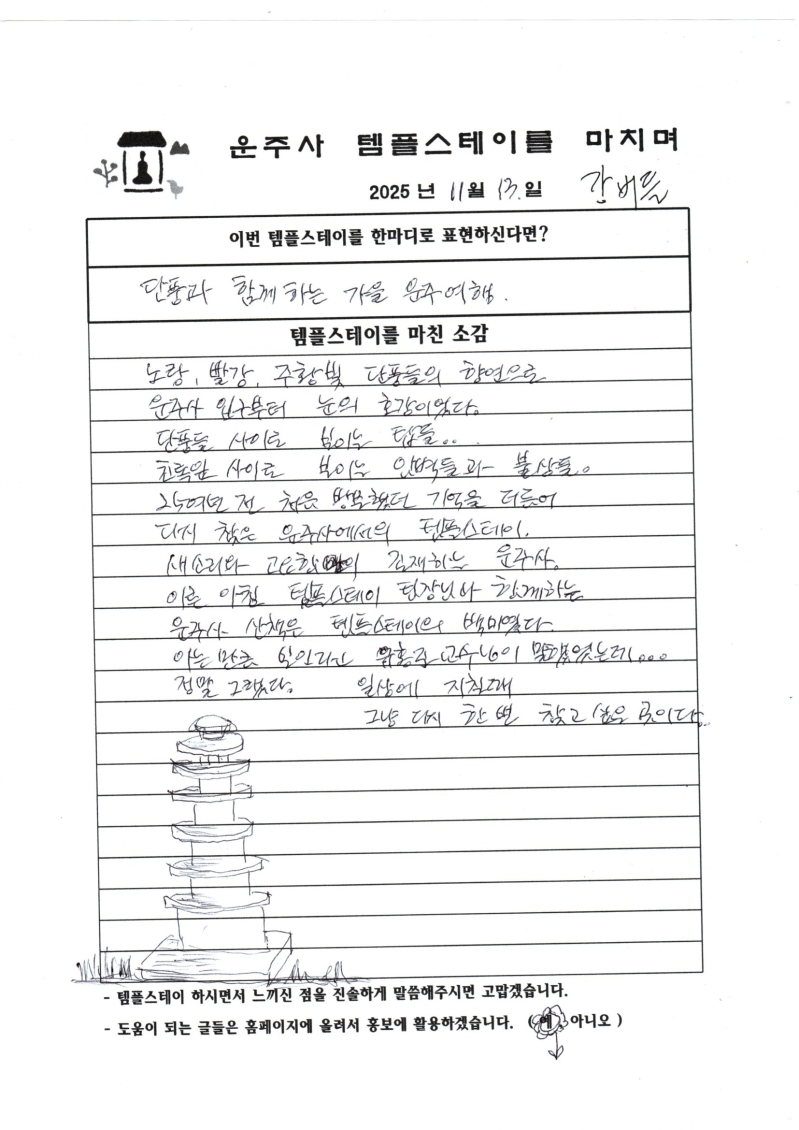 운주사 템플스테이를 마치며
2025 년 11월 13.일 강버들
이번 템플스테이를 한마디로 표현하신다면?
단풍과 함께하는 가을 운주여행.
템플스테이를 마친 소감
노랑, 빨강, 주황빛 단풍들의 향연으로
운주사 입구부터 눈의 호강이었다.
단풍들 사이로 보이는 탑들..
초록잎 사이로 보이는 암벽들과 불상들.
25여년 전 처음 방문했던 기억을 더듬어
다시 찾은 운주사에서의 템플스테이.
새소리와 고요함 존재하는 운주사.
이른 아침 템플스테이 팀장님과 함께하는
운주사 산책은 템플스테이의 백미였다
아는 만큼 보인다고 유홍준 교수님이 말했었는데...
정말 그랬다. 일상에 지칠때
그냥 다시 한 번 찾고 싶은 곳이다.
- 템플스테이 하시면서 느끼신 점을 진솔하게 말씀해주시면 고맙겠습니다.
- 도움이 되는 글들은 홈페이지에 올려서 홍보에 활용하겠습니다. ( 예, 아니오 )